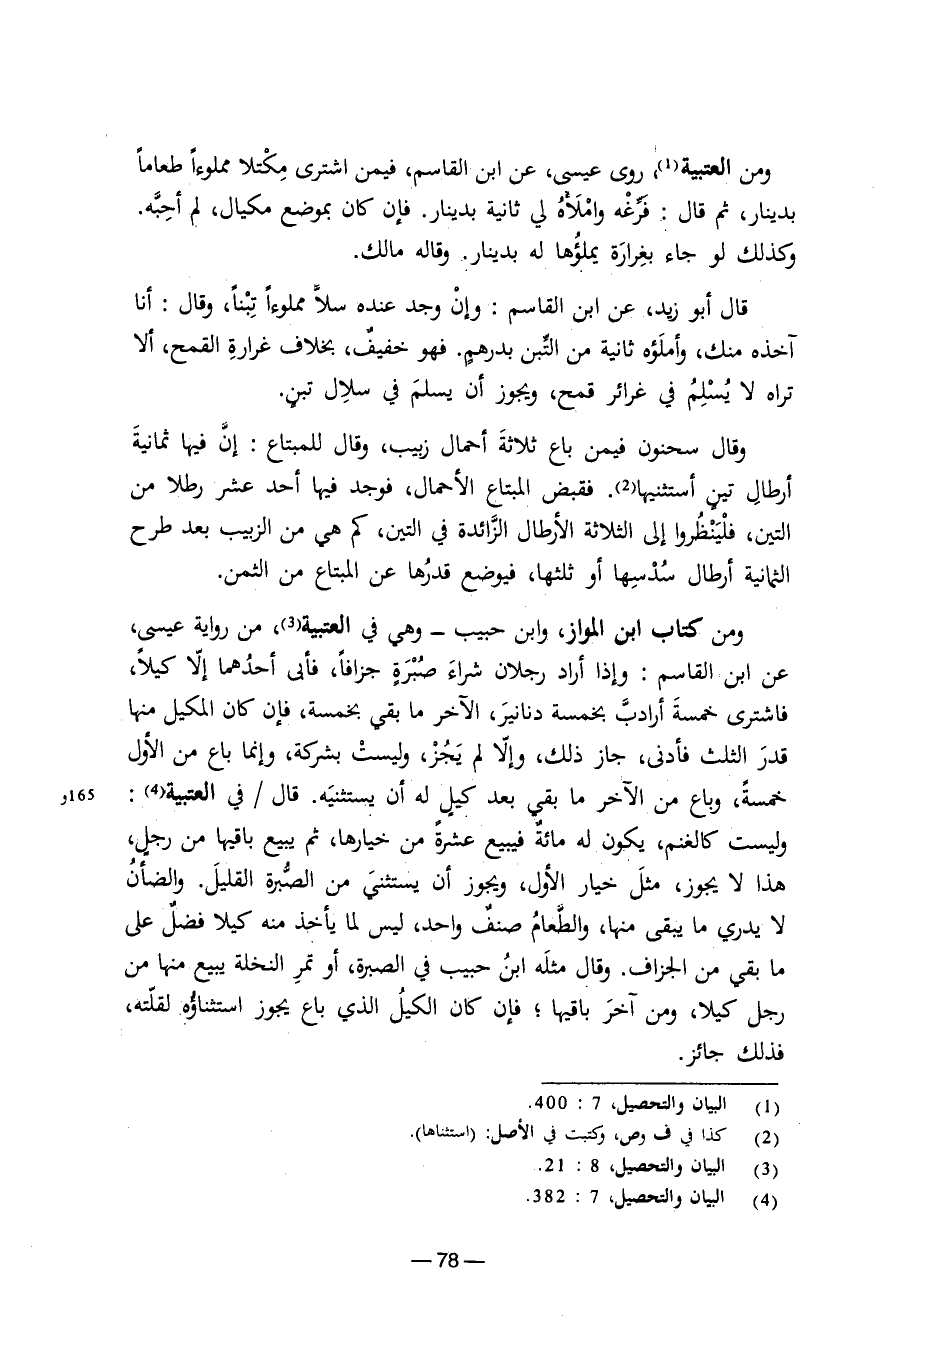 ومن العتبية(1)، روى عيسى، عن ابن القاسم، فيمن اشترى مِكْتلا مملوءاً طعاماً
بدينار، ثم قال : فَرِّغْه وامْلَأْهُ لي ثانية بدينار. فإن كان بموضع مكيال، لم أُحِبَّه.
وكذلك لو جاء بغِرارَة يملؤُها له بدينار. وقاله مالك.
قال أبو زيد، عن ابن القاسم : وإنْ وجد عنده سلاَّ مملوءاً تِبْناً، وقال : أنا
آخذه منك، وأملَؤه ثانية من التِّبن بدرهمٍ. فهو خفيفٌ، بخلاف غرارةِ القمح، ألا
تراه لا يُسْلِمُ في غرائر قمح، ويجوز أن يسلمَ في سلالِ تبنٍ.
وقال سحنون فيمن باع ثلاثةَ أحمال زبيب، وقال للمبتاع : إنَّ فيها ثمانيةَ
أرطالِ تينٍ أستثنيها(2). فقبض المبتاع الأحمال، فوجد فيها أحد عشر رطلا من
التين، فلْيَنْظُروا إلى الثلاثة الأرطال الزَّائدة في التين، كم هي من الزبيب بعد طرح
الثمانية أرطال سُدْسِها أو ثلثها، فيوضع قدرُها عن المبتاع من الثمن.
ومن كتاب ابن المواز، وابن حبيب ــ وهي في العتبية(3)، من رواية عيسى،
عن ابن القاسم : وإذا أراد رجلان شراءَ صُبْرَةٍ جزافاً، فأبى أحدُهما إلَّا كيلاً،
فاشترى خمسةَ أرادبَّ بخمسة دنانيرَ، الآخر ما بقي بخمسة، فإن كان المكيل منها
قدرَ الثلث فأدنى، جاز ذلك، وإلَّا لم يَجُزْ، وليستْ بشركة، وإنما باع من الأول
خمسةً، وباع من الآخر ما بقي بعد كيلٍ له أن يستثنيَه. قال / في العتبية(4) :
165و
وليست كالغنم، يكون له مائةٌ فيبيع عشرةً من خيارها، ثم يبيع باقيها من رجلٍ،
هذا لا يجوز، مثلَ خيار الأول، ويجوز أن يستثنيَ من الصُّبرة القليلَ. والضأنُ
لا يدري ما يبقى منها، والطَّعامُ صنفٌ واحد، ليس لما يأخذ منه كيلا فضلٌ على
ما بقي من الجزاف. وقال مثلَه ابنُ حبيب في الصبرة، أو تمرِ النخلة يبيع منها من
رجل كيلا، ومن آخرَ باقيها ؛ فإن كان الكيلُ الذي باع يجوز استثناؤُه لقلّته،
فذلك جائز.
(1) البيان والتحصيل، 7 : 400.
(2) كذا في ف وص، وكتبت في الأصل: (استثناها).
(3) البيان والتحصيل، 8 : 21.
(4) البيان والتحصيل، 7 : 382.
— 78 —